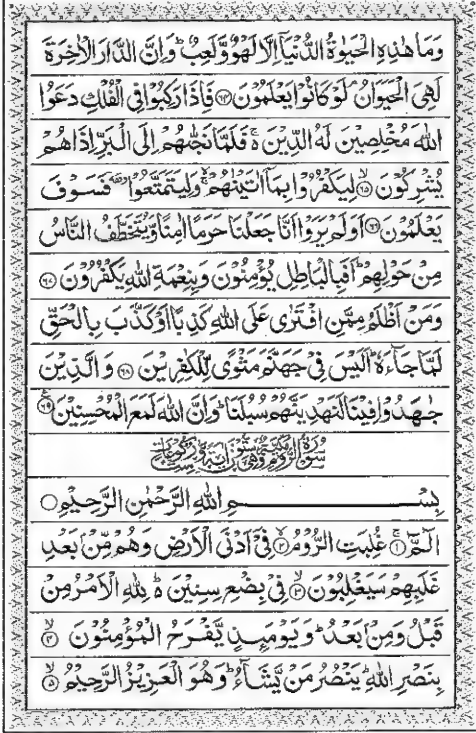 وَمَا هٰذِهِ الْحَيٰوةُ الدُّنْيَآ اِلَّا لَهْوٌ وَّلَعِبٌ ؕ وَاِنَّ الدَّارَ الْاٰخِرَةَ
لَهِيَ الْحَيَوَانُ ۘ لَوْ كَانُوْا يَعْلَمُوْنَ ﴿۶۴﴾ فَاِذَا رَكِبُوْا فِي الْفُلْكِ دَعَوُا
اللهَ مُخْلِصِيْنَ لَهُ الدِّيْنَ ۚ۬ فَلَمَّا نَجّٰىهُمْ اِلَى الْبَرِّ اِذَا هُمْ
يُشْرِكُوْنَ ۙ﴿۶۵﴾ لِيَكْفُرُوْا بِمَآ اٰتَيْنٰهُمْ ۚۙ وَلِيَتَمَتَّعُوْا ٝ فَسَوْفَ
يَعْلَمُوْنَ ﴿۶۶﴾ اَوَلَمْ يَرَوْا اَنَّا جَعَلْنَا حَرَمًا اٰمِنًا وَّيُتَخَطَّفُ النَّاسُ
مِنْ حَوْلِهِمْ ؕ اَفَبِالْبَاطِلِ يُؤْمِنُوْنَ وَبِنِعْمَةِ اللهِ يَكْفُرُوْنَ ﴿۶۷﴾
وَمَنْ اَظْلَمُ مِمَّنِ افْتَرٰى عَلَى اللهِ كَذِبًا اَوْ كَذَّبَ بِالْحَقِّ
لَمَّا جَآءَهٗ ؕ اَلَيْسَ فِيْ جَهَنَّمَ مَثْوًى لِّلْكٰفِرِيْنَ ﴿۶۸﴾ وَالَّذِيْنَ
جٰهَدُوْا فِيْنَا لَنَهْدِيَنَّهُمْ سُبُلَنَا ؕ وَاِنَّ اللهَ لَمَعَ الْمُحْسِنِيْنَ ﴿۶۹﴾
بِسْمِ اللهِ الرَّحْمٰنِ الرَّحِيْمِ
الٓمّٓ ۚ﴿۱﴾ غُلِبَتِ الرُّوْمُ ۙ﴿۲﴾ فِيْٓ اَدْنَى الْاَرْضِ وَهُمْ مِّنْۢ بَعْدِ
غَلَبِهِمْ سَيَغْلِبُوْنَ ۙ﴿۳﴾ فِيْ بِضْعِ سِنِيْنَ ۬ؕ لِلّٰهِ الْاَمْرُ مِنْ
قَبْلُ وَمِنْۢ بَعْدُ ؕ وَيَوْمَئِذٍ يَّفْرَحُ الْمُؤْمِنُوْنَ ۙ﴿۴﴾
بِنَصْرِ اللهِ ؕ يَنْصُرُ مَنْ يَّشَآءُ ؕ وَهُوَ الْعَزِيْزُ الرَّحِيْمُ ۙ﴿۵﴾